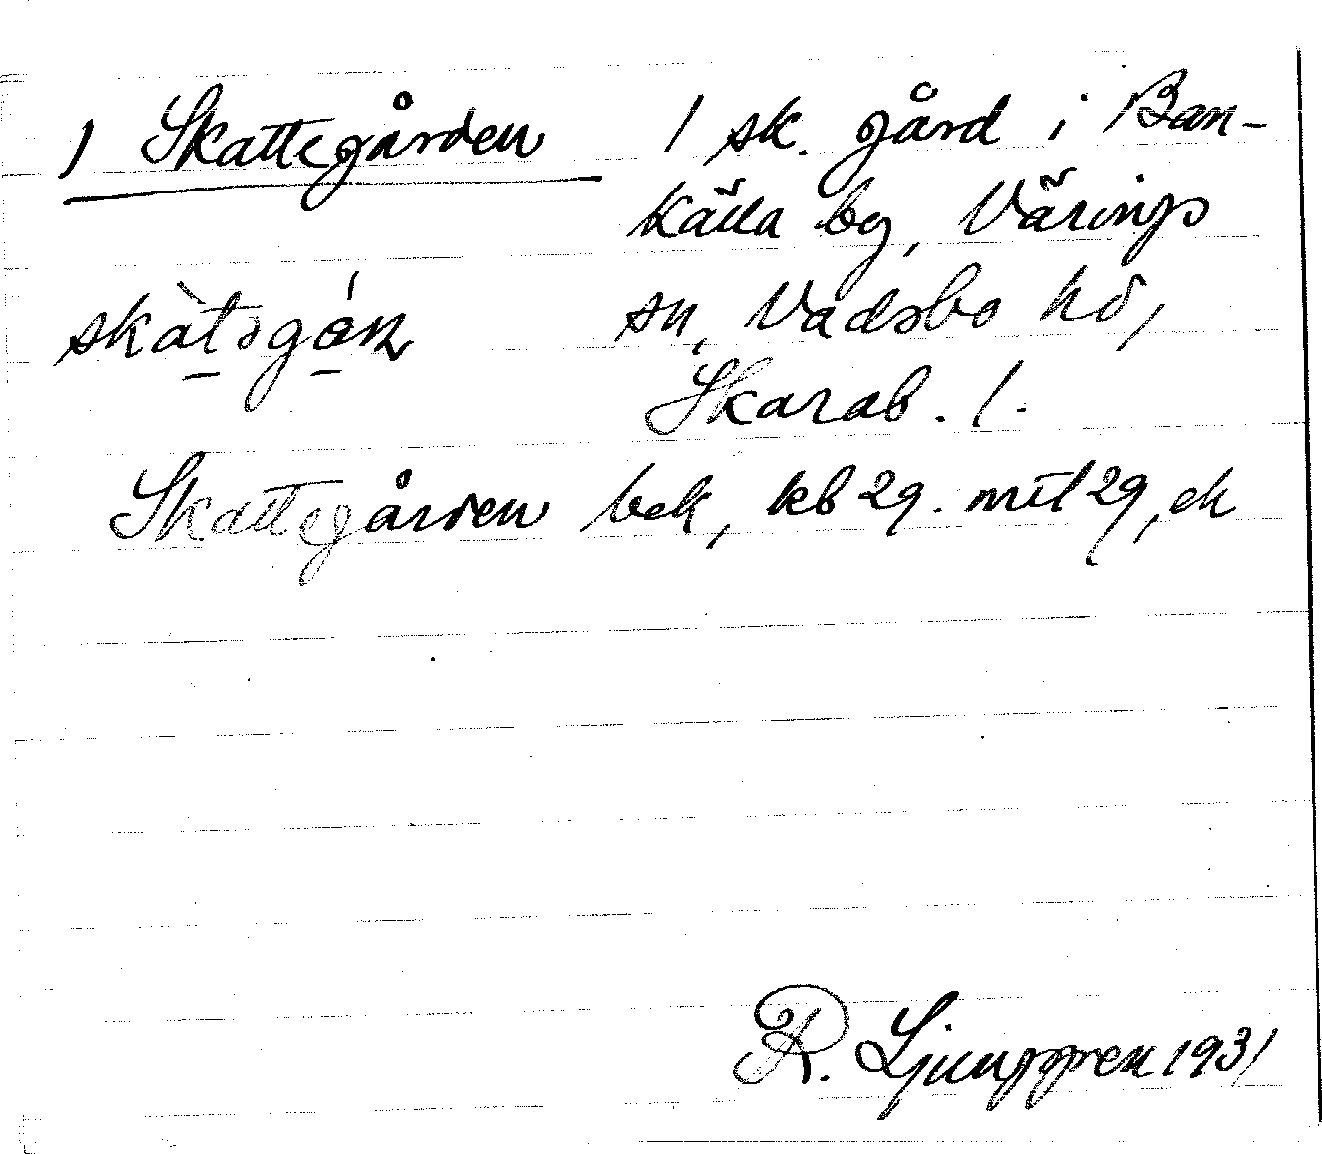 1 Skattegården 1 sk. gård i Ban-
källa by, Värings
skàt̠əgán sn, Vadsbo hd,
Skarab. l.
Skattegården bek, kb 29. mtl 29, ek
R. Ljunggren 1931